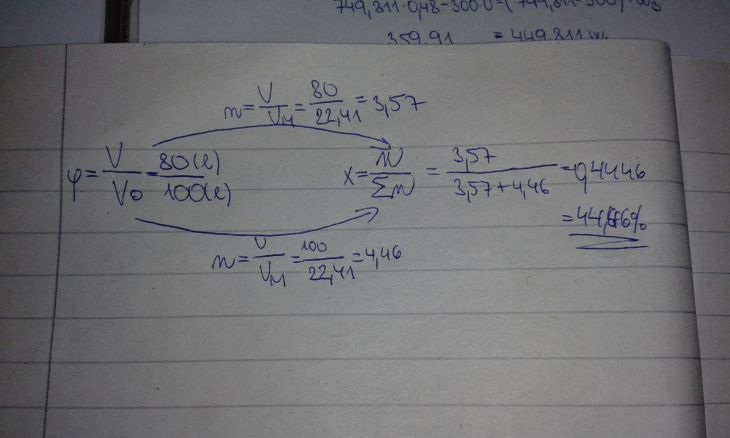 749,811·0,48-300·0=(749,811-300)·w₆
359,91 = 449,811w₆
n=V/V_M=80/22,41=3,57
φ=V/V₀=80(l)/100(l)
x=n/Σn=3,57/(3,57+4,46)=0,4446
=44,46%
n=V/V_M=100/22,41=4,46